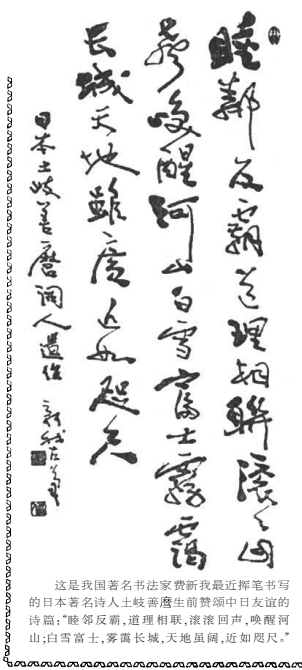 睦鄰反霸道理相聯滾々回
聲喚醒河山白雪富士霧靄
長城天地雖廣近如咫尺
日本土岐善麿詞人遺作
新我左筆
这是我国著名书法家费新我最近挥笔书写
的日本著名诗人土岐善麿生前赞颂中日友谊的
诗篇:“睦邻反霸,道理相联,滚滚回声,唤醒河
山;白雪富士,雾霭长城,天地虽阔,近如咫尺。”